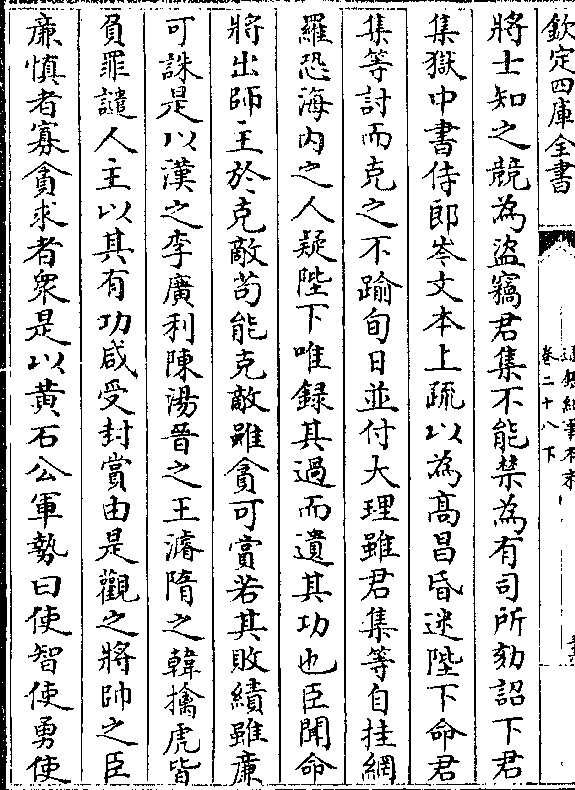 欽定四庫全書
卷二十八下
將士知之競為盜竊君集不能禁為有司所劾詔下君
集獄中書侍郎岑文本上疏以為髙昌昏迷陛下命君
集等討而克之不踰旬日並付大理雖君集等自挂網
羅恐海内之人疑陛下唯録其過而遺其功也臣聞命
將出師主於克敵苟能克敵雖貪可賞若其敗績雖亷
可誅是以漢之李廣利陳湯晉之王濬隋之韓擒虎皆
負罪譴人主以其有功咸受封賞由是觀之將帥之臣
亷慎者寡貪求者衆是以黃石公軍勢曰使智使勇使